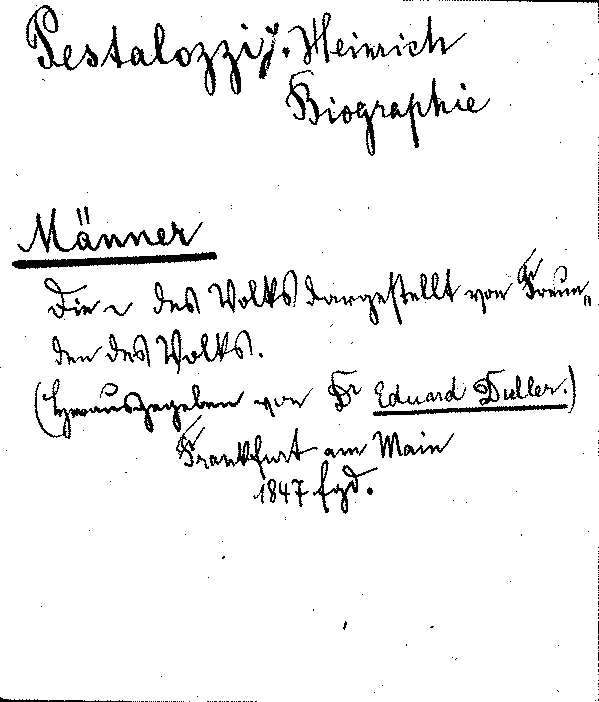 Pestalozzi, Heinrich
Biographie
Männer
Die ~ des Volks dargestellt von Freun„
den des Volks.
(Herausgegeben von Dr Eduard Duller.)
Frankfurt am Main
1847 fgd.